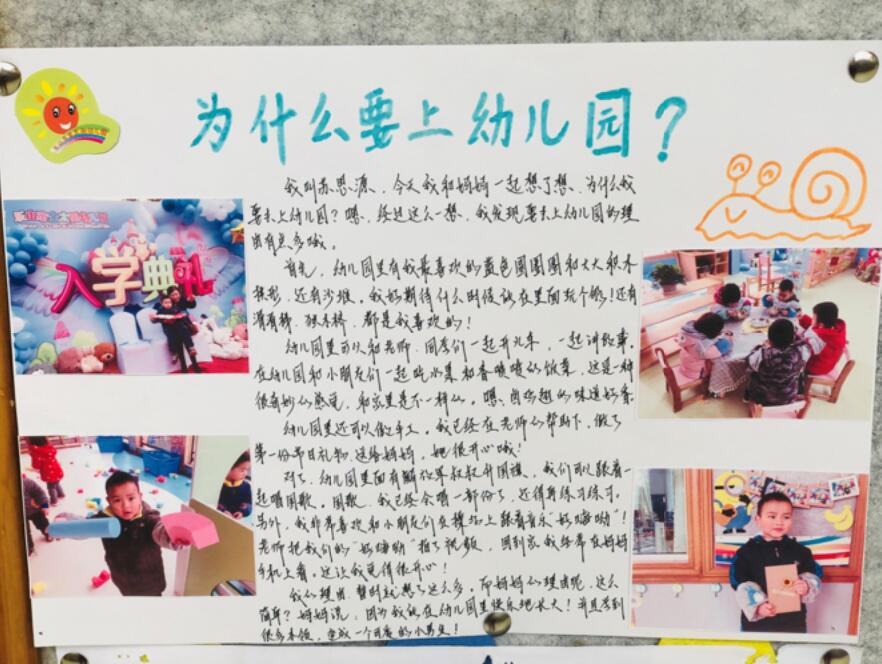 为什么要上幼儿园？
我叫苏思源，今天我和妈妈一起想了想，为什么我
要去上幼儿园？嗯，经过这么一想，我发现要去上幼儿园的理
由有点多哦。
首先，幼儿园里有我最喜欢的蓝色圈圈圈和大大积木
还有沙堆。我好期待什么时候能在里面玩个够！还有
滑滑梯、独木桥，都是我喜欢的！
幼儿园里可以和老师、同学们一起开火车，一起讲故事。
在幼儿园和小朋友们一起吃水果和香喷喷的饭菜，这是一种
很奇妙的感觉，和家里是不一样的。嗯，的味道好香。
幼儿园里还可以做手工。我已经在老师的帮助下，做了
第一份节日礼物，送给妈妈，她很开心哦！
对了，幼儿园里面有解放军叔叔升国旗，我们可以跟着一
起唱国歌。国歌，我已经会唱一部份了，还得再练习练习。
另外，我非常喜欢和小朋友们在操场上跟着音乐“好嗨呦”！
老师把我们的“好嗨呦”拍了视频，回到家我经常在妈妈
手机上看。这让我觉得很开心！
我的理由，暂时就想了这么多。而妈妈的理由呢，这么
简单？妈妈说，因为我能在幼儿园里快乐地长大！并且学到
很多本领，变成一个可爱的小男生！
入学典礼